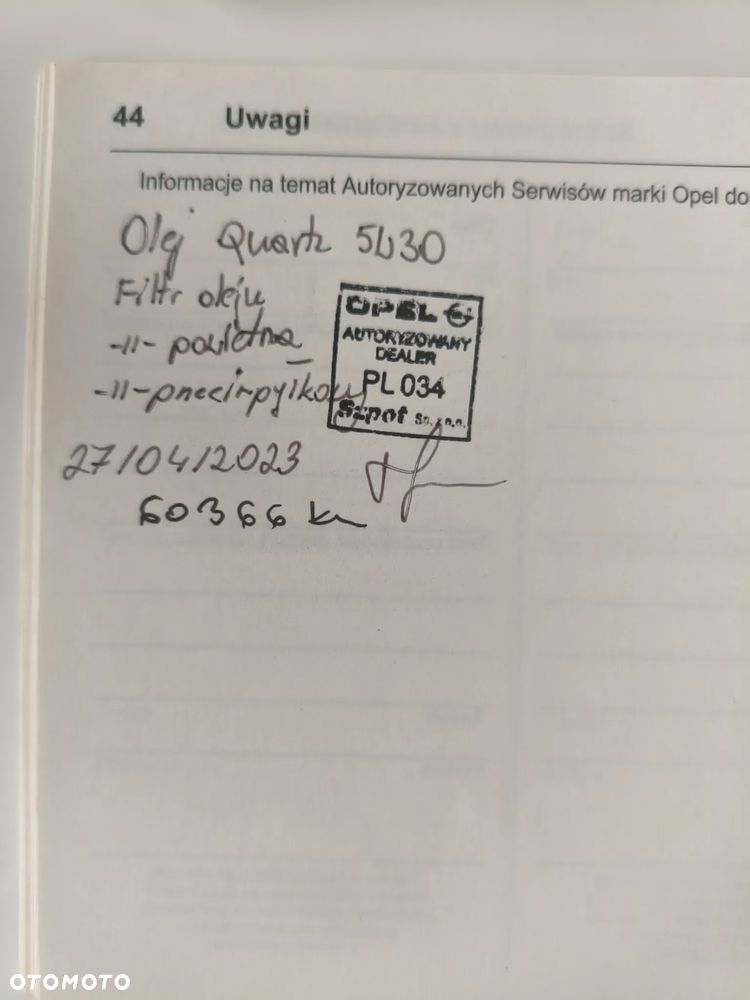 44 Uwagi
Informacje na temat Autoryzowanych Serwisów marki Opel do
Olej Quartz 5W30
Filtr oleju
-||- powietrza
-||- przeciwpyłkowy
OPEL
AUTORYZOWANY
DEALER
PL 034
Szpot Sp. z o.o.
27/04/2023
60366 km
OTOMOTO